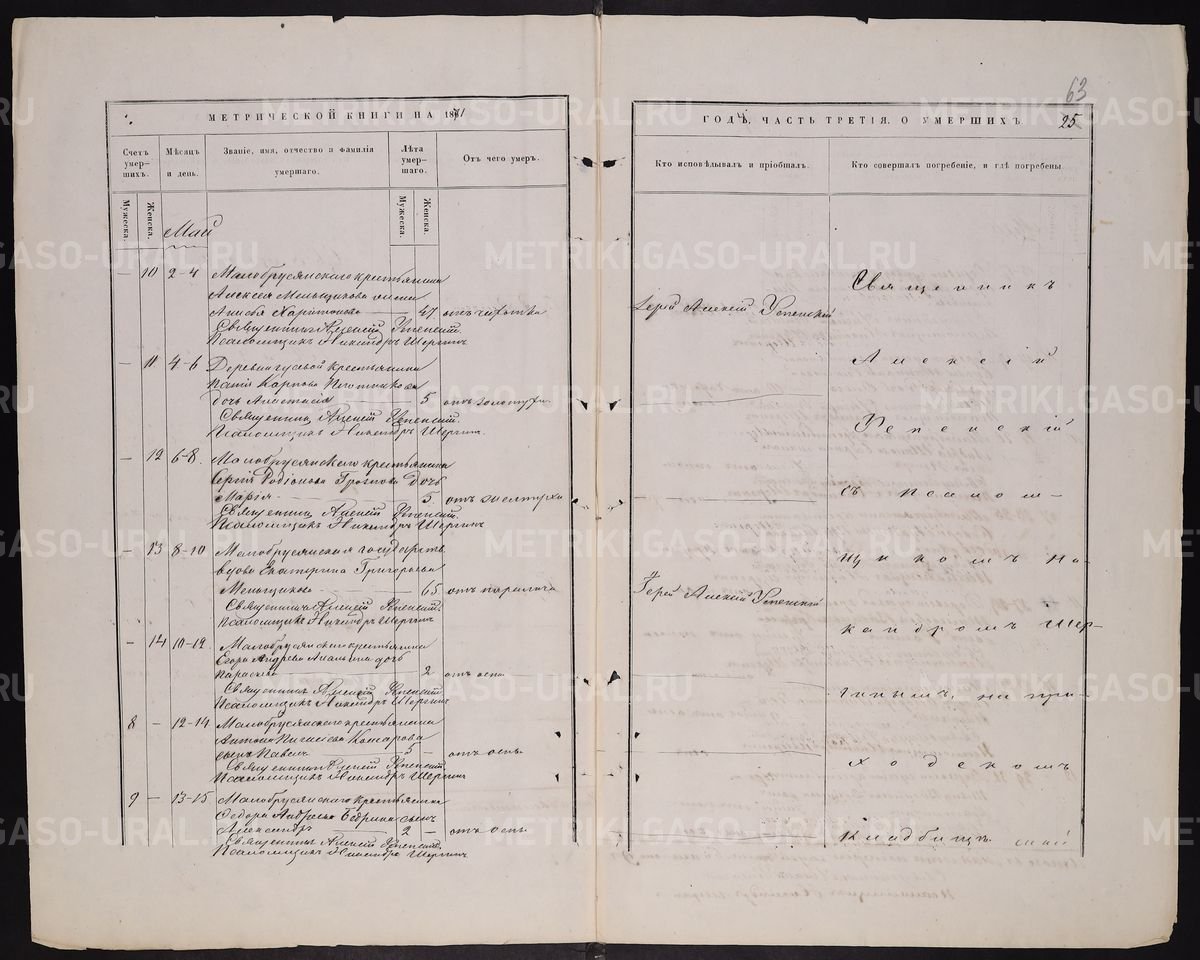 63
МЕТРИЧЕСКОЙ КНИГИ НА 1871
ГОДЪ, ЧАСТЬ ТРЕТІЯ, О УМЕРШИХЪ.
25
Счетъ умер-
шихъ.
Мѣсяцъ
и день.
Званіе, имя, отчество и фамилія
умершаго.
Лѣта
умер-
шаго.
Отъ чего умеръ.
Кто исповѣдывалъ и пріобщалъ.
Кто совершалъ погребеніе, и гдѣ погребены
Мужеска.
Женска.
Мужеска.
Женска.
Май
– 10 2-4 Малобрусянскаго крестьянина
Алексѣя Меньщикова жена
Анисья Харитонова 47 отъ чахотки
Священникъ Алексій Успенскій.
Псаломщикъ Никандръ Шергинъ
Іерей Алексій Успенскій
– 11 4-6 Деревни Гусевой крестьянина
Карпова Плотникова
дочь Анастасія 5 отъ
Священникъ Алексій Успенскій.
Псаломщикъ Никандръ Шергинъ.
– 12 6-8. Малобрусянскаго крестьянина
Сергія Родіонова дочь
Марія 5 отъ
Священникъ Алексій Успенскій.
Псаломщикъ Никандръ Шергинъ
– 13 8-10 Малобрусянская
вдова Екатерина Григорьева
Меньщикова 65 отъ паралича
Священникъ Алексій Успенскій
Псаломщикъ Никандръ Шергинъ
Іерей Алексій Успенскій
– 14 10-12. Малобрусянскаго крестьянина
Егора Андреева дочь
Параскева 2 отъ оспы
Священникъ Алексій Успенскій
Псаломщикъ Никандръ Шергинъ
8 – 12-14 Малобрусянскаго крестьянина
Антона Комарова
сынъ Павелъ 5 – отъ оспы.
Священникъ Алексій Успенскій
Псаломщикъ Никандръ Шергинъ
9 – 13-15 Малобрусянскаго крестьянина
Федора сынъ
Александръ 2 – отъ оспы
Священникъ Алексій Успенскій
Псаломщикъ Никандръ Шергинъ
Священникъ
Алексій
Успенскій
съ псалом-
щикомъ Ни-
кандромъ Шер-
гинымъ, на при-
ходскомъ
кладбищѣ
METRIKI.GASO-URAL.RU